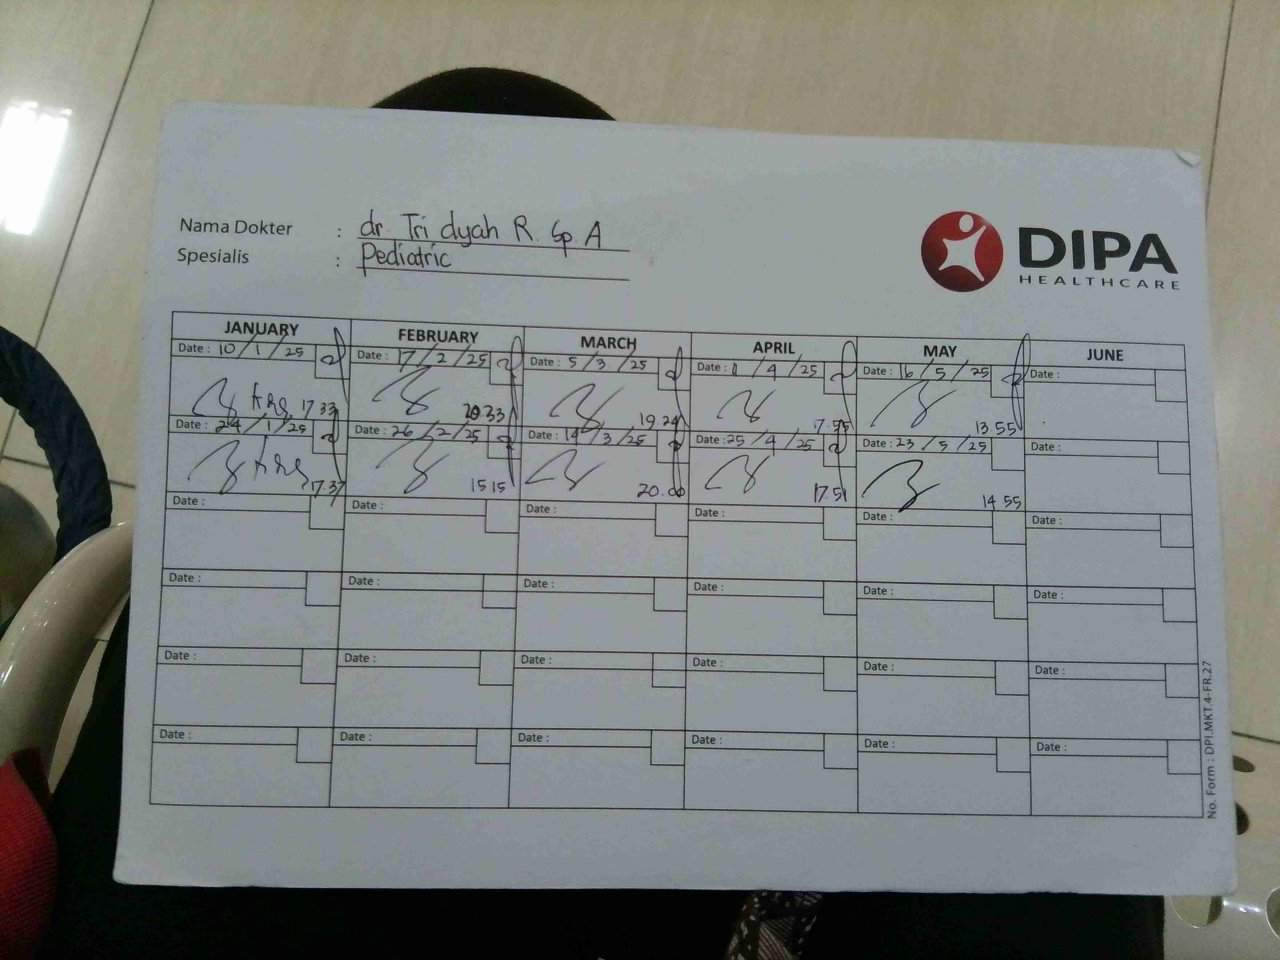 Nama Dokter : dr. Tri dyah R. Sp. A
Spesialis : Pediatric
DIPA
HEALTHCARE
JANUARY FEBRUARY MARCH APRIL MAY JUNE
Date : 10/1/25 Date : 17/2/25 Date : 5/3/25 Date : /4/25 Date : 16/5/25 Date :
17 33 20 33 19 24 17.55 13 55
24/1/25 Date : 26/2/25 Date : 14/3/25 Date : 25/4/25 Date : 23/5/25 Date :
17 37 15 15 20.00 17 51 14 55
Date : Date : Date : Date : Date : Date :
Date : Date : Date : Date : Date : Date :
Date : Date : Date : Date : Date : Date :
Date : Date : Date : Date : Date : Date :
No. Form : DPI.MKT.4-FR.27